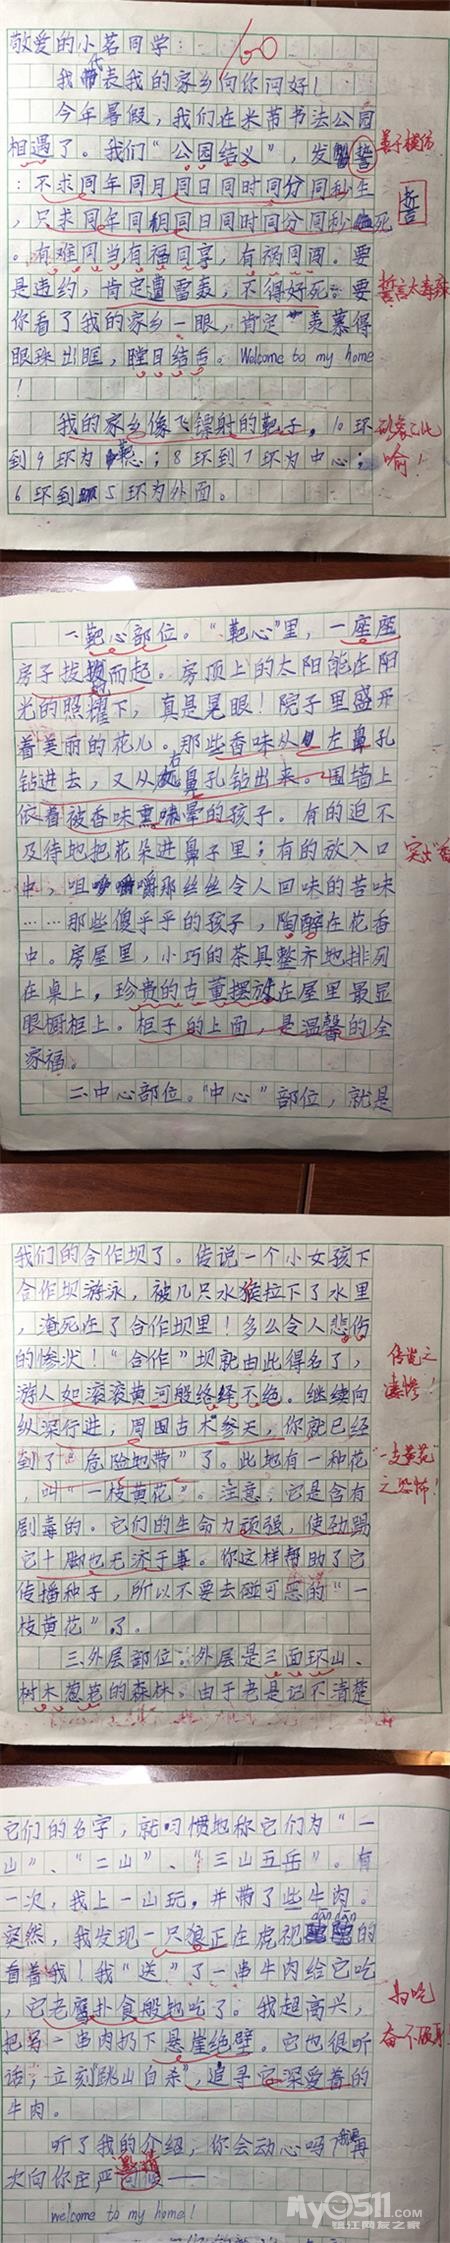 敬爱的小茗同学：
60
我代表我的家乡向你问好！
今年暑假，我们在米芾书法公园
相遇了。我们“公园结义”，发誓
善于模仿
：不求同年同月同日同时同分同秒生
誓
，只求同年同月同日同时同分同秒死
。有难同当有福同享，有祸同闯。要
是违约，肯定遭雷轰，不得好死。要
誓言太毒辣
你看了我的家乡一眼，肯定羡慕得
眼珠出眶，瞠目结舌。Welcome to my home
！
我的家乡像飞镖射的靶子，10环
形象之比
到9环为靶心；8环到7环为中心；
喻！
6环到5环为外面。
一、靶心部位。“靶心”里，一座座
房子拔地而起。房顶上的太阳能在阳
光的照耀下，真是晃眼！院子里盛开
着美丽的花儿。那些香味从左鼻孔
钻进去，又从右鼻孔钻出来。围墙上
依着被香味熏晕的孩子。有的迫不
及待地把花朵进鼻子里；有的放入口
突出“香
中，咀嚼那丝丝令人回味的苦味
……那些傻乎乎的孩子，陶醉在花香
中。房屋里，小巧的茶具整齐地排列
在桌上，珍贵的古董摆放在屋里最显
眼橱柜上。柜子的上面，是温馨的全
家福。
二、中心部位。“中心”部位，就是
我们的合作坝了。传说一个小女孩下
合作坝游泳，被几只水猴拉下了水里
，淹死在了合作坝里！多么令人悲伤
的惨状！“合作”坝就由此得名了，
传说之
凄惨！
游人如滚滚黄河般络绎不绝。继续向
纵深行进，周围古木参天，你就已经
到了“危险地带”了。此地有一种花
“一支黄花”
，叫“一枝黄花”。注意，它是含有
之恐怖！
剧毒的。它们的生命力顽强，使劲踢
它十脚也无济于事。你这样帮助了它
传播种子，所以不要去碰可恶的“一
枝黄花”了。
三、外层部位。外层是三面环山、
树木葱茏的森林。由于老是记不清楚
它们的名字，就习惯地称它们为“一
山”、“二山”、“三山五岳”。有
一次，我上一山玩，并带了些牛肉。
dān dān
突然，我发现一只狼正在虎视眈眈的
看着我！我“送”了一串牛肉给它吃
为吃
，它老鹰扑食般地吃了。我超高兴，
奋不顾身
把另一串肉扔下悬崖绝壁。它也很听
话，立刻“跳山自杀”，追寻它深爱着的
牛肉。
听了我的介绍，你会动心吗？我再
次向你庄严邀请——
welcome to my home！
My0511.com
镇江网友之家